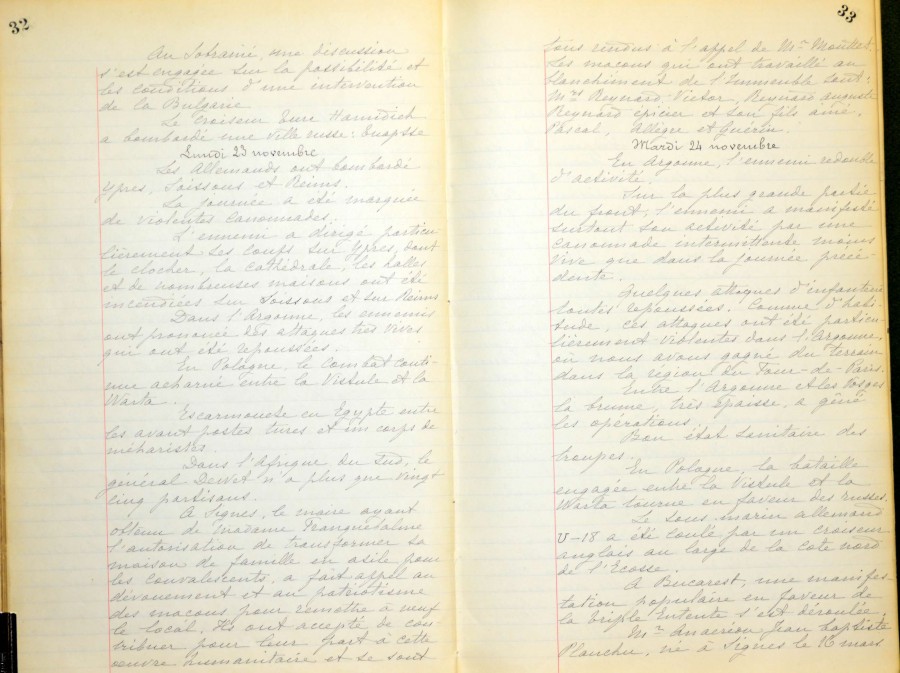 32
Au Sobranié, une discussion
s'est engagée sur la possibilité et
les conditions d'une intervention
de la Bulgarie.
Le croiseur Hamidieh
a bombardé une ville russe: Touapsse
Lundi 23 novembre
Les Allemands ont bombardé
Ypres, Soissons et Reims.
La journée a été marquée
de violentes canonnades.
L'ennemi a dirigé particu
lièrement ses coups sur Ypres, dont
le clocher, la cathédrale, les halles
et de nombreuses maisons ont été
incendiées sur Soissons et sur Reims
Dans l'Argonne, les ennemis
ont prononcé des attaques très vives
qui ont été repoussées.
En Pologne, le combat conti-
nue acharné entre la Vistule et la
Warta.
Escarmouche en Egypte entre
les avant postes turcs et un corps de
méharistes.
Dans l'Afrique du Sud, le
général Dewet n'a plus que vingt
cinq partisans.
A Signes, le maire ayant
obtenu de Madame
l'autorisation de transformer sa
maison de famille en asile pour
les convalescents, a fait appel au
dévouement et au patriotisme
des maçons pour remettre à neuf
le local. Ils ont accepté de con-
tribuer pour leur part à cette
oeuvre humanitaire et se sont
33
tous rendus à l'appel de Mr Moullet.
Les maçons qui ont travaillé au
blanchiment de l'immeuble sont:
Mrs Reynard Victor, Reynard auguste
Reynard épicier et son fils ainé,
Pascal, Allègre et Guérin.
Mardi 24 novembre
En Argonne, l'ennemi redouble
d'activité.
Sur la plus grande partie
du front, l'ennemi a manifesté
surtout son activité par une
canonnade intermittente moins
vive que dans la journée précé-
dente.
Quelques attaques d'infanterie
toutes repoussées. Comme d'habi-
tude, ces attaques ont été particu-
lièrement violentes dans l'Argonne,
où nous avons gagné du terrain
dans la région du Four-de-Paris.
Entre l'Argonne et les Vosges
la brume, très épaisse, a gêné
les opérations.
Bon état sanitaire des
troupes.
En Pologne, la bataille
engagée entre la Vistule et la
Warta tourne en faveur des russes.
Le sous-marin allemand
U-18 a été coulé par un croiseur
anglais au large de la côte nord
de l'Ecosse.
A Bucarest, une manifes-
tation populaire en faveur de
la triple Entente s'est déroulée.
Mr Jean Baptiste
né à Signes le 16 mars